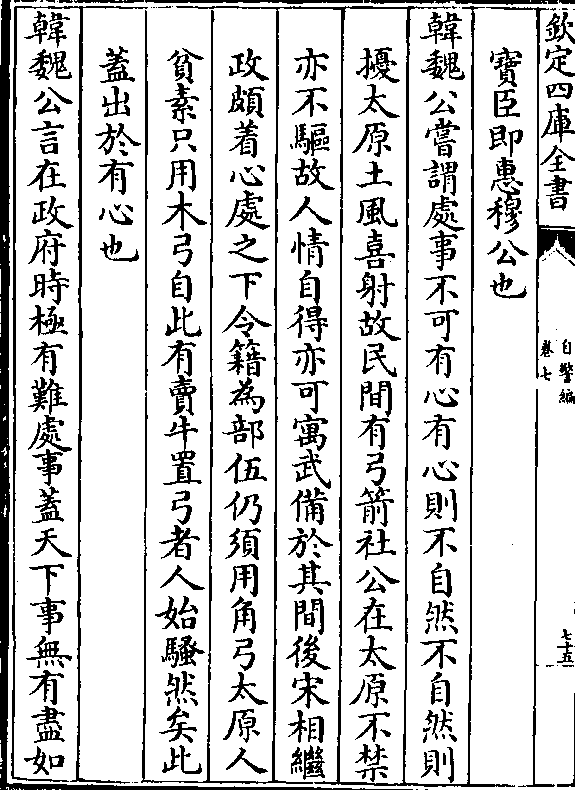 欽定四庫全書
自警編
卷七
七十五
寶臣即惠穆公也
韓魏公嘗謂處事不可有心有心則不自然不自然則
擾太原土風喜射故民間有弓箭社公在太原不禁
亦不驅故人情自得亦可寓武備於其間後宋相繼
政頗着心處之下令籍為部伍仍須用角弓太原人
貧素只用木弓自此有賣牛置弓者人始騷然矣此
蓋出於有心也
韓魏公言在政府時極有難處事蓋天下事無有盡如